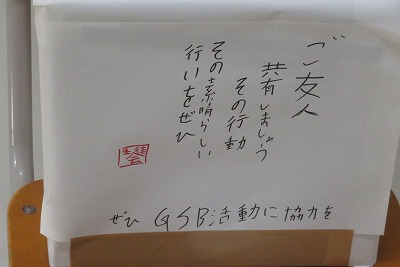 ご友人
共有しましょう
その行動
その素晴らしい
行いをぜひ
ぜひ GSB活動に協力を